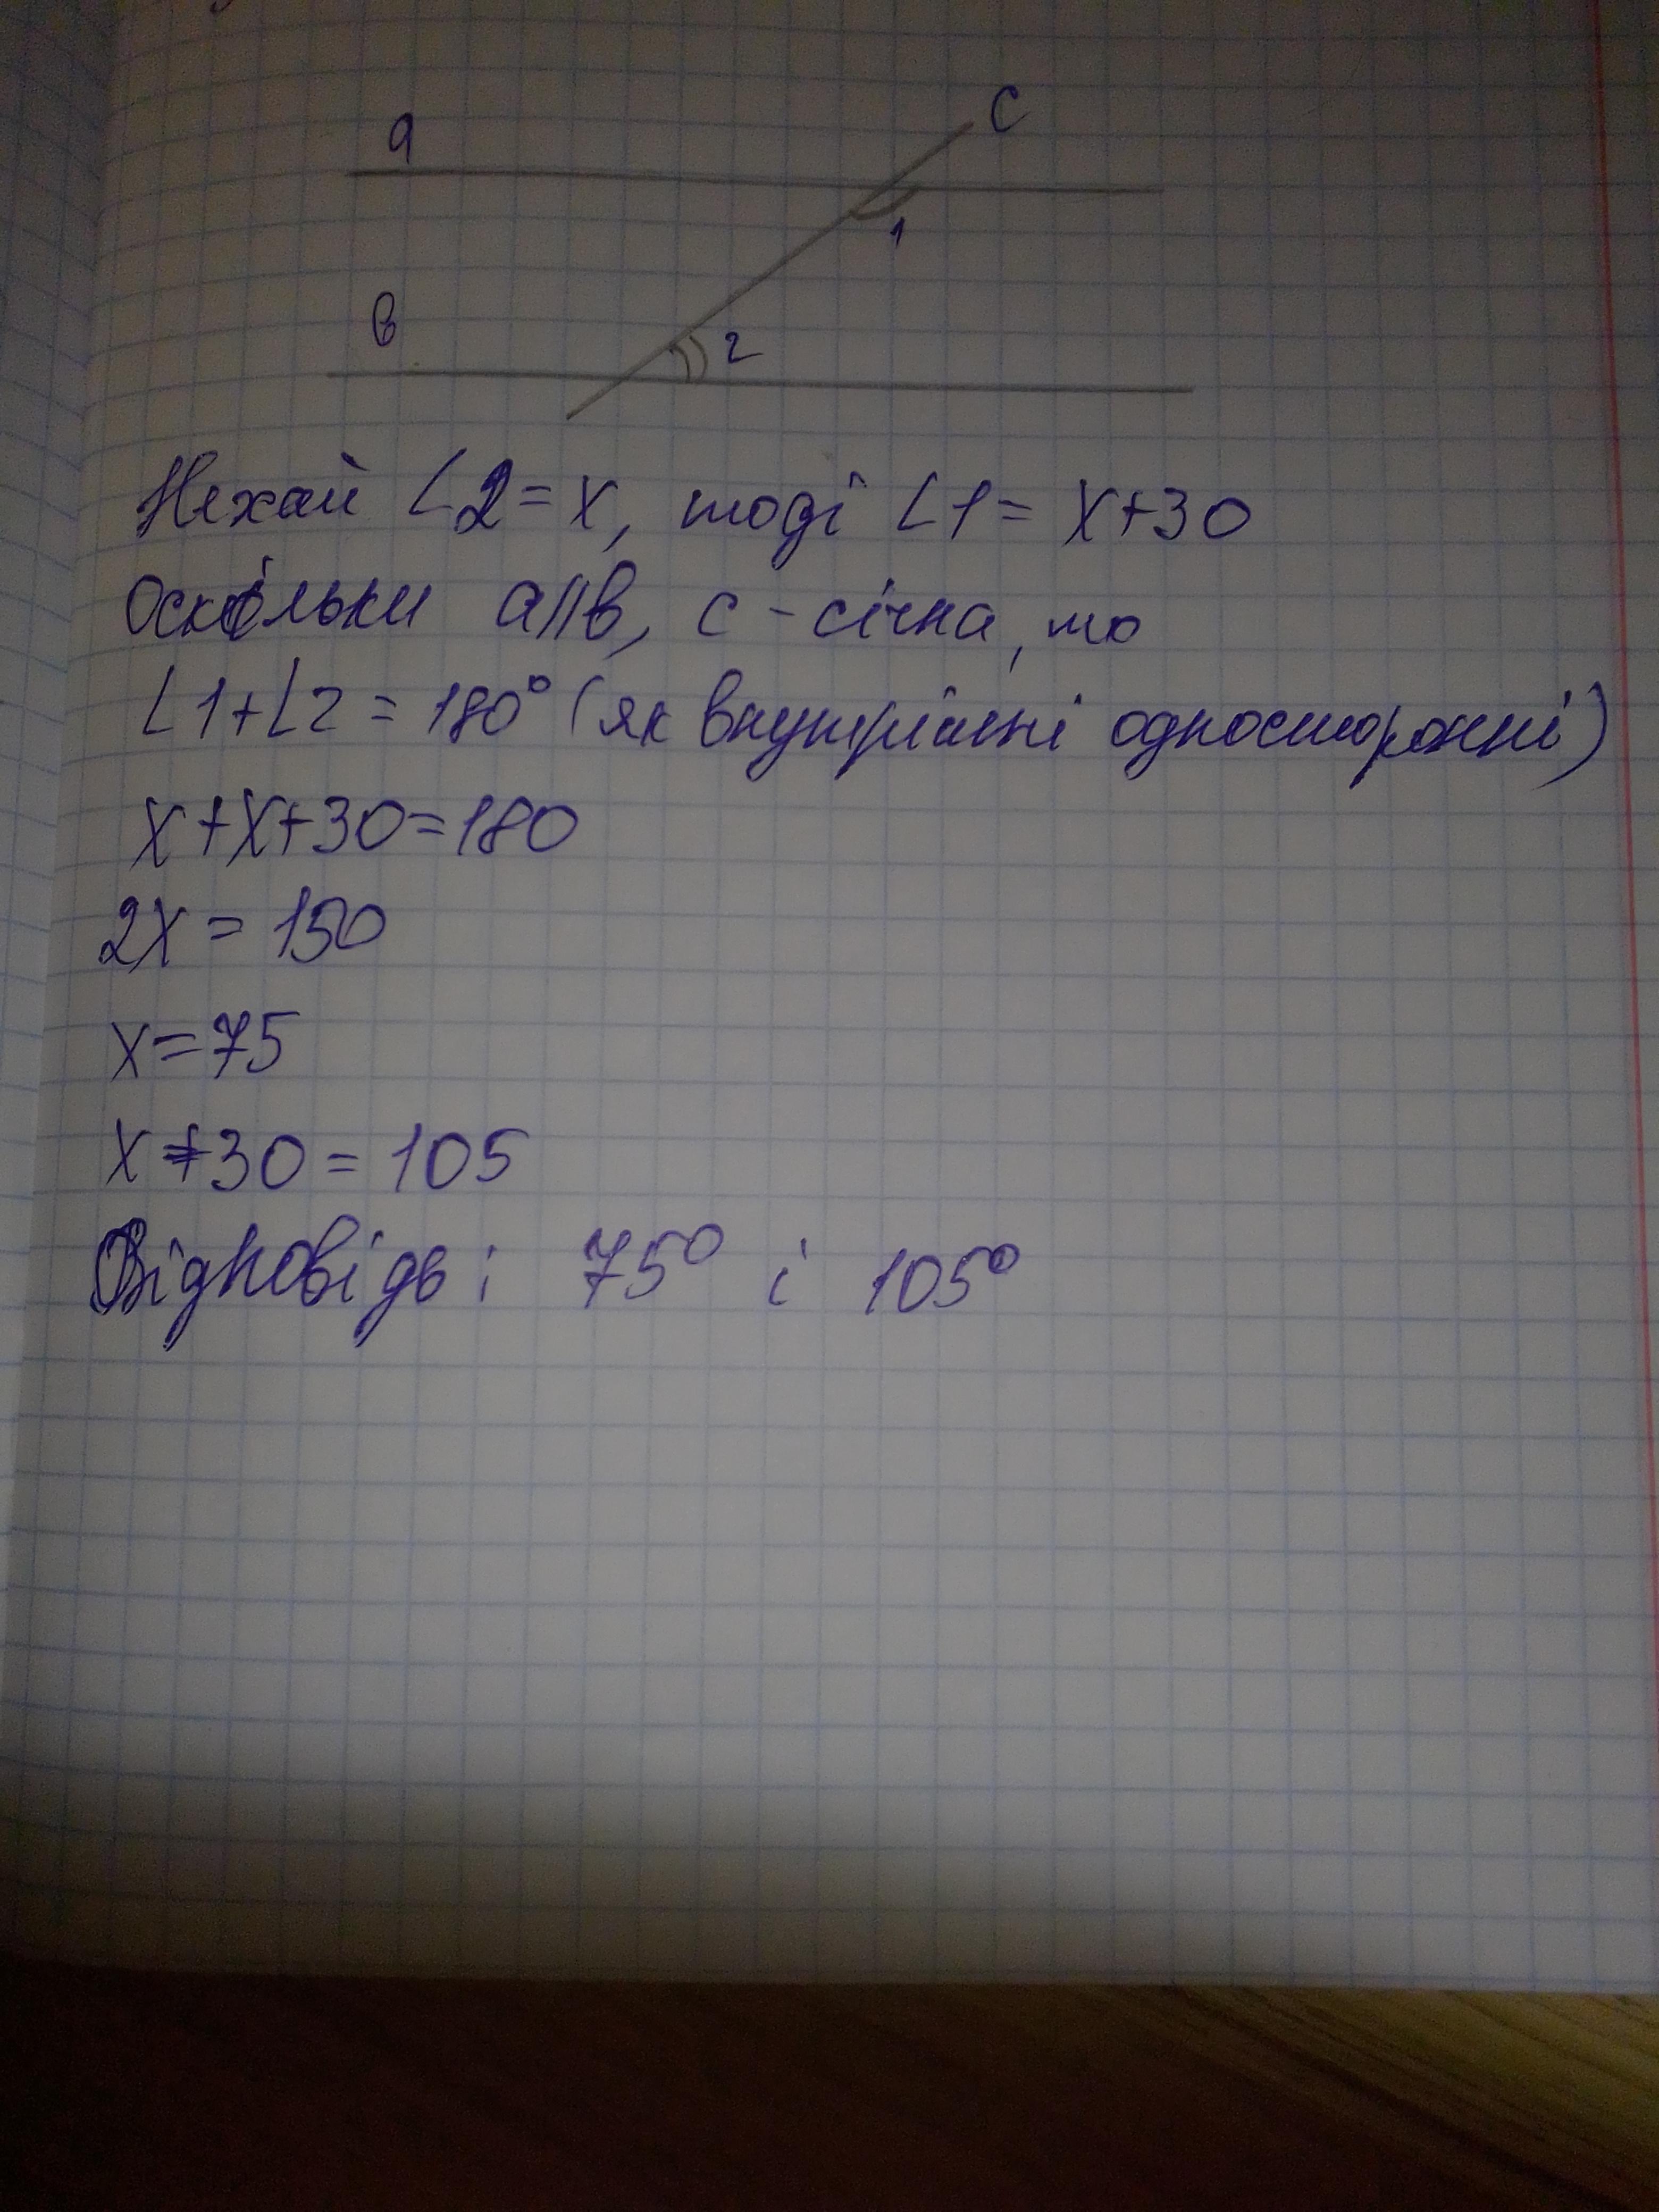 a
c
1
в
2
Нехай ∠2 = x, тоді ∠1 = x+30
Оскільки a∥в, c - січна, то
∠1+∠2 = 180° (як внутрішні односторонні)
x+x+30=180
2x = 150
x=75
x+30=105
Відповідь: 75° і 105°